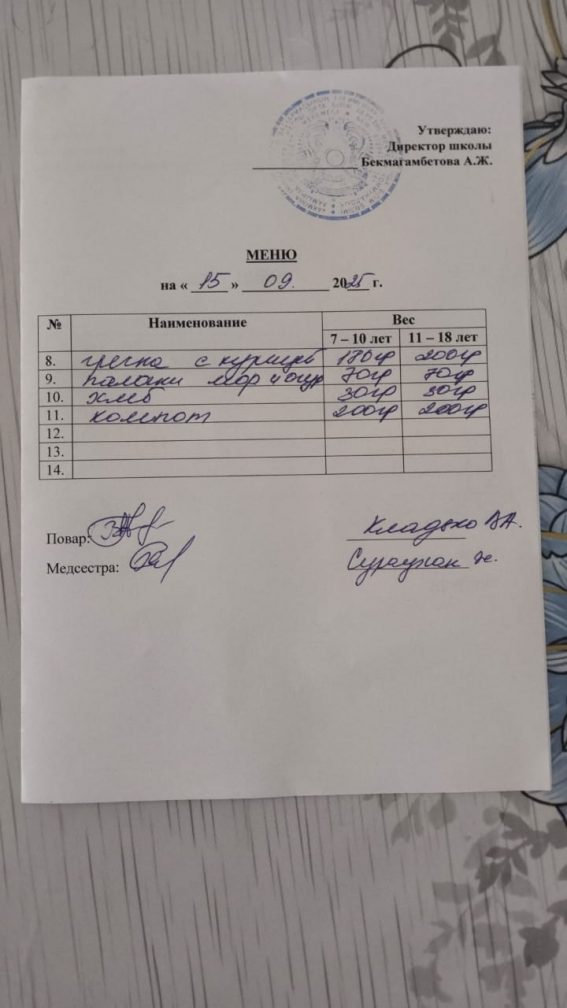 Утверждаю:
Директор школы
Бекмагамбетова А.Ж.
МЕНЮ
на « 15 » 09. 2025 г.
№ Наименование Вес
7 – 10 лет 11 – 18 лет
8. гречка с курицей 180гр 200гр
9. палочки мор и огур 70гр 70гр
10. хлеб 30гр 30гр
11. компот 200гр 200гр
12.
13.
14.
Повар: Кладько В.А.
Медсестра: